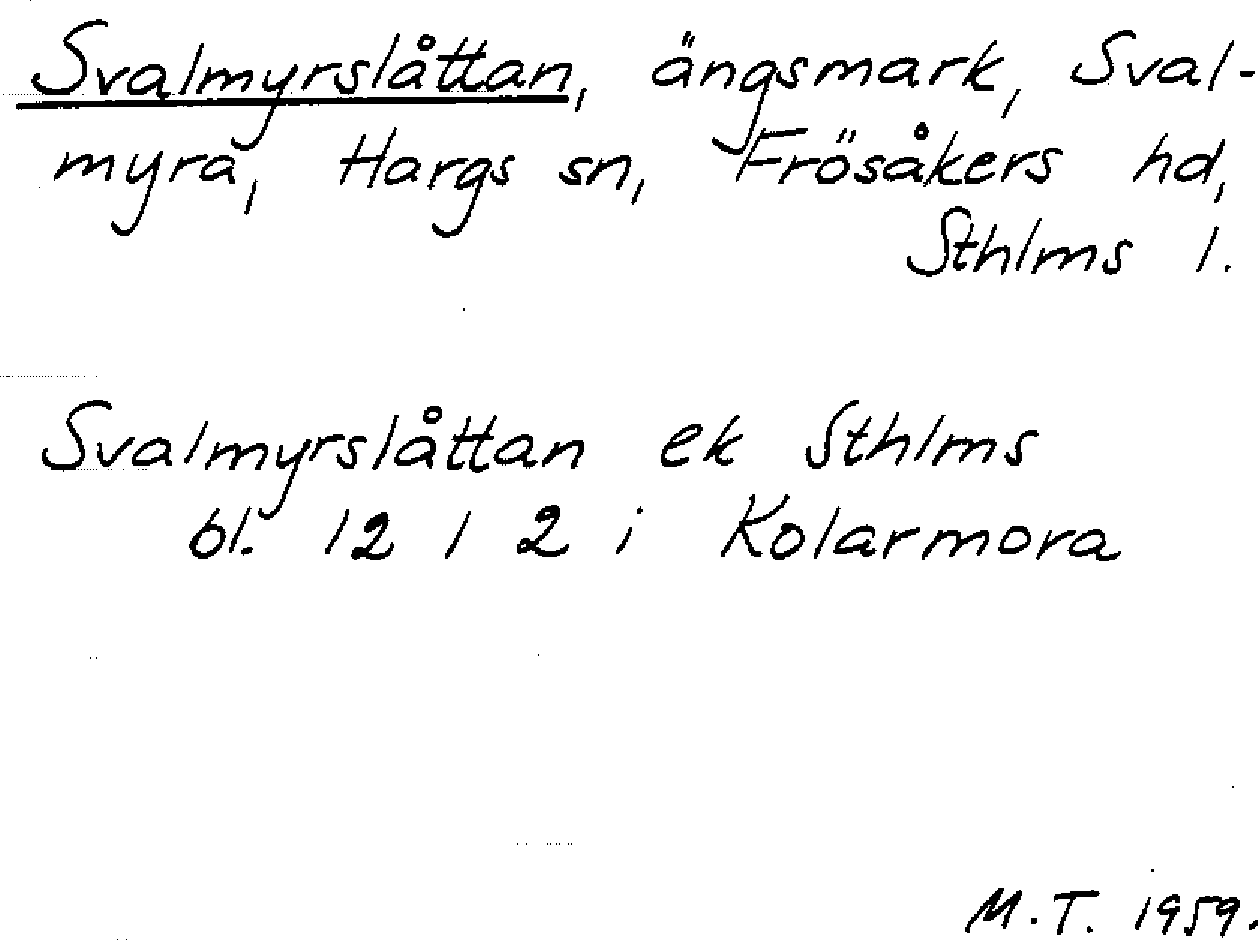 Svalmyrslåttan, ängsmark, Sval-
myra, Hargs sn, Frösåkers hd,
Sthlms l.
Svalmyrslåttan ek Sthlms
bl. 12 1 2 i Kolarmora
M.T. 1959.